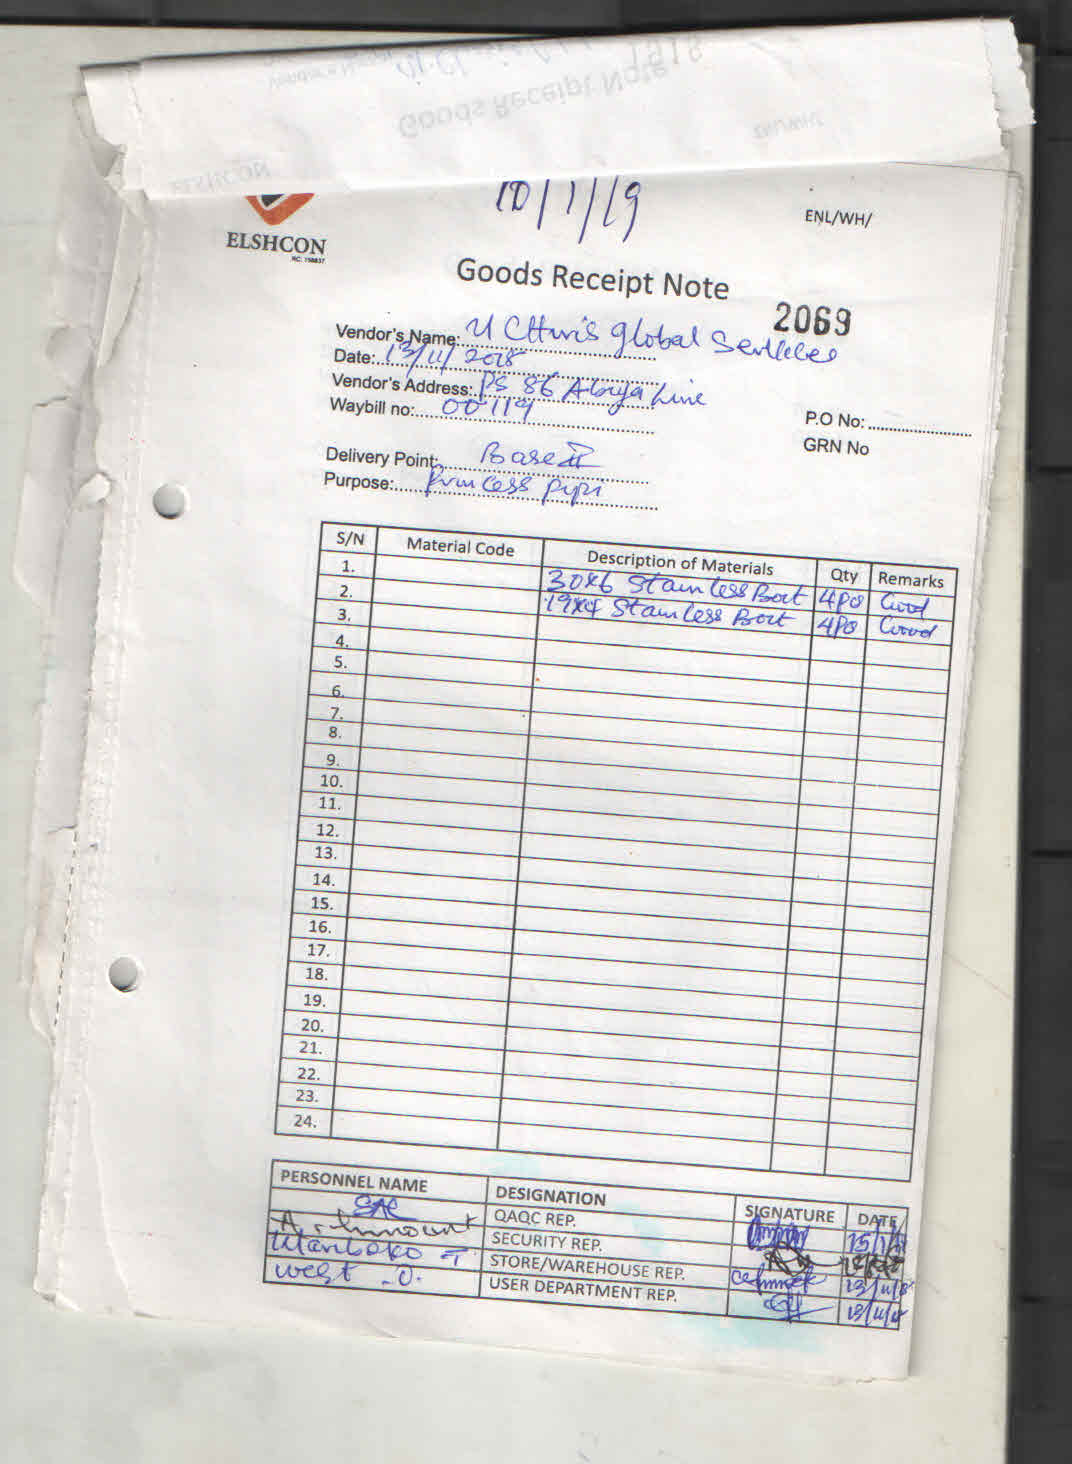 Goods Receipt Note
1818
ELSHCON
ENL/WH/
10/1/19
ENL/WH/
ELSHCON
RC: 156837
Goods Receipt Note
2069
Vendor's Name: U Chris Global Services
Date: 13/11/2018
Vendor's Address: PS 86 Abuja Line
Waybill no: 00119
P.O No:
GRN No
Delivery Point: Base II
Purpose: Princess Pipi
S/N Material Code Description of Materials Qty Remarks
1. 30x6 Stainless Bolt 4Pcs Good
2. 19x4 Stainless Bolt 4Pcs Good
3.
4.
5.
6.
7.
8.
9.
10.
11.
12.
13.
14.
15.
16.
17.
18.
19.
20.
21.
22.
23.
24.
PERSONNEL NAME DESIGNATION SIGNATURE DATE
QAQC REP.
A. SECURITY REP.
STORE/WAREHOUSE REP. 13/11/18
West .O. USER DEPARTMENT REP. 13/11/18